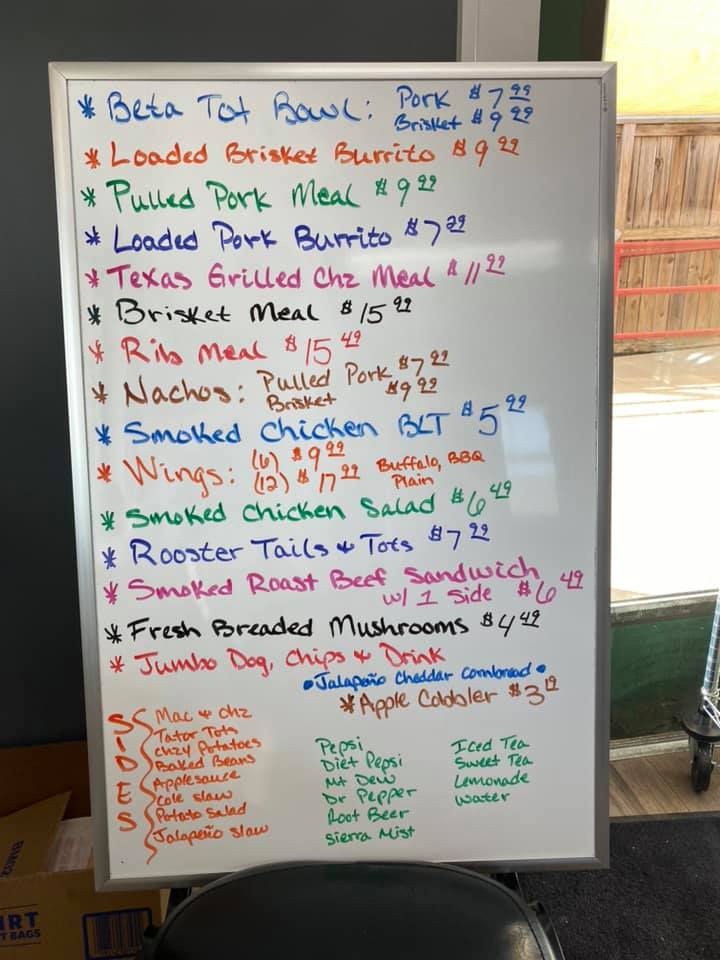 * Beta Tot Bowl: Pork $7 99
Brisket $9 99
* Loaded Brisket Burrito $9 99
* Pulled Pork Meal $9 99
* Loaded Pork Burrito $7 99
* Texas Grilled Chz Meal $11 99
* Brisket Meal $15 99
* Rib Meal $15 49
* Nachos: Pulled Pork $7 99
Brisket $9 99
* Smoked Chicken BLT $5 99
* Wings: (6) $9 99 Buffalo, BBQ
(12) $17 99 Plain
* Smoked Chicken Salad $6 49
* Rooster Tails & Tots $7 99
* Smoked Roast Beef Sandwich
w/ 1 Side $6 49
* Fresh Breaded Mushrooms $4 49
* Jumbo Dog, Chips & Drink
• Jalapeño Cheddar Cornbread •
* Apple Cobbler $3 19
SIDES
Mac & chz
Tator Tots
chzy Potatoes
Baked Beans
Applesauce
Cole slaw
Potato Salad
Jalapeño slaw
Pepsi
Diet Pepsi
Mt Dew
Dr Pepper
Root Beer
Sierra Mist
Iced Tea
Sweet Tea
Lemonade
Water
IRT
T BAGS